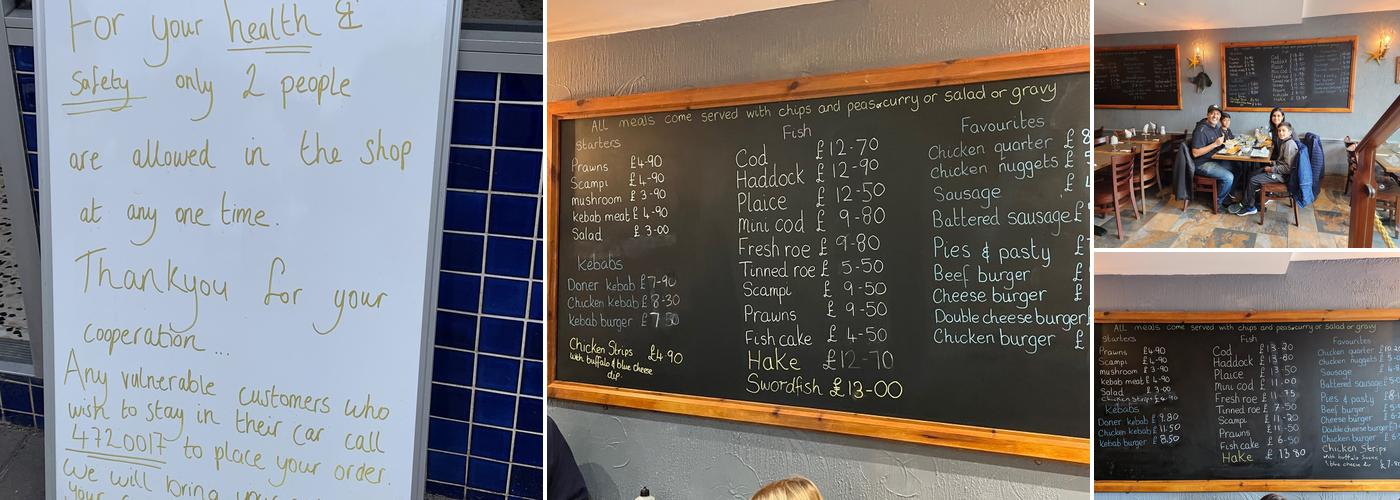 For your health &
Safety only 2 people
are allowed in the shop
at any one time.
Thankyou for your
cooperation...
Any vulnerable customers who
wish to stay in their car call
4720017 to place your order.
we will bring
ALL meals come served with chips and peas or curry or salad or gravy
starters
Prawns £4-90
Scampi £4-90
mushroom £3-90
kebab meat £4-90
Salad £3-00
Kebabs
Doner kebab £7-90
Chicken kebab £8-30
kebab burger £7 50
Chicken Strips £4-90
with buffalo & blue cheese
dip.
Fish
Cod £12-70
Haddock £12-90
Plaice £12-50
Mini cod £9-80
Fresh roe £9-80
Tinned roe £5-50
Scampi £9-50
Prawns £9-50
Fish cake £4-50
Hake £12-70
Swordfish £13-00
Favourites
Chicken quarter £
chicken nuggets £
Sausage £
Battered sausage £
Pies & pasty £
Beef burger £
Cheese burger £
Double cheese burger
Chicken burger £
ALL meals come served with chips and peas or curry or salad or gravy
starters
Prawns £4-90
Scampi £4-90
mushroom £3-90
kebab meat £4-90
Salad £3-00
Chicken Strips £4-90
Kebabs
Doner kebab £9.80
Chicken kebab £11.50
kebab burger £8.50
Fish
Cod £13-20
Haddock £13-80
Plaice £13-50
Mini cod £11.00
Fresh roe £11-75
Tinned roe £7-50
Scampi £11-20
Prawns £11-50
Fish cake £6-50
Hake £13 80
Favourites
Chicken quarter
Chicken nuggets
Sausage
Battered sausage
Pies & pasty
Beef burger
Cheese burger
Double cheese burger
Chicken burger
Chicken Strips
with buffalo sauce
& blue cheese